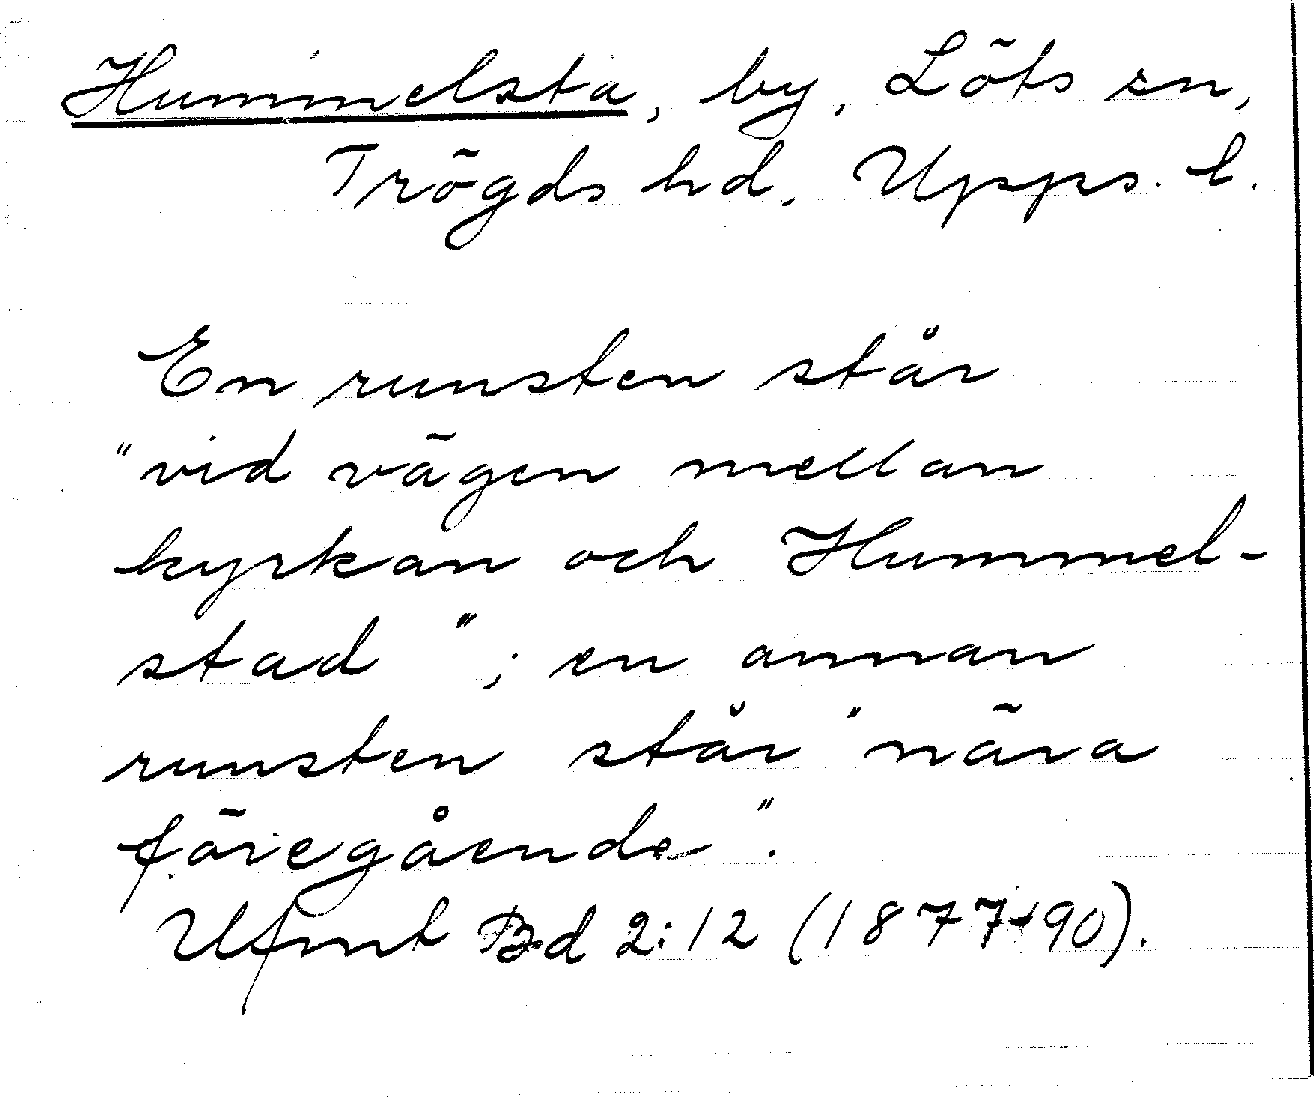 Hummelsta, by, Löts sn,
Trögds hd, Upps. l.
En runsten står
"vid vägen mellan
kyrkan och Hummel-
stad"; en annan
runsten står "nära
föregående".
Ufmt Bd 2:12 (1877-90).